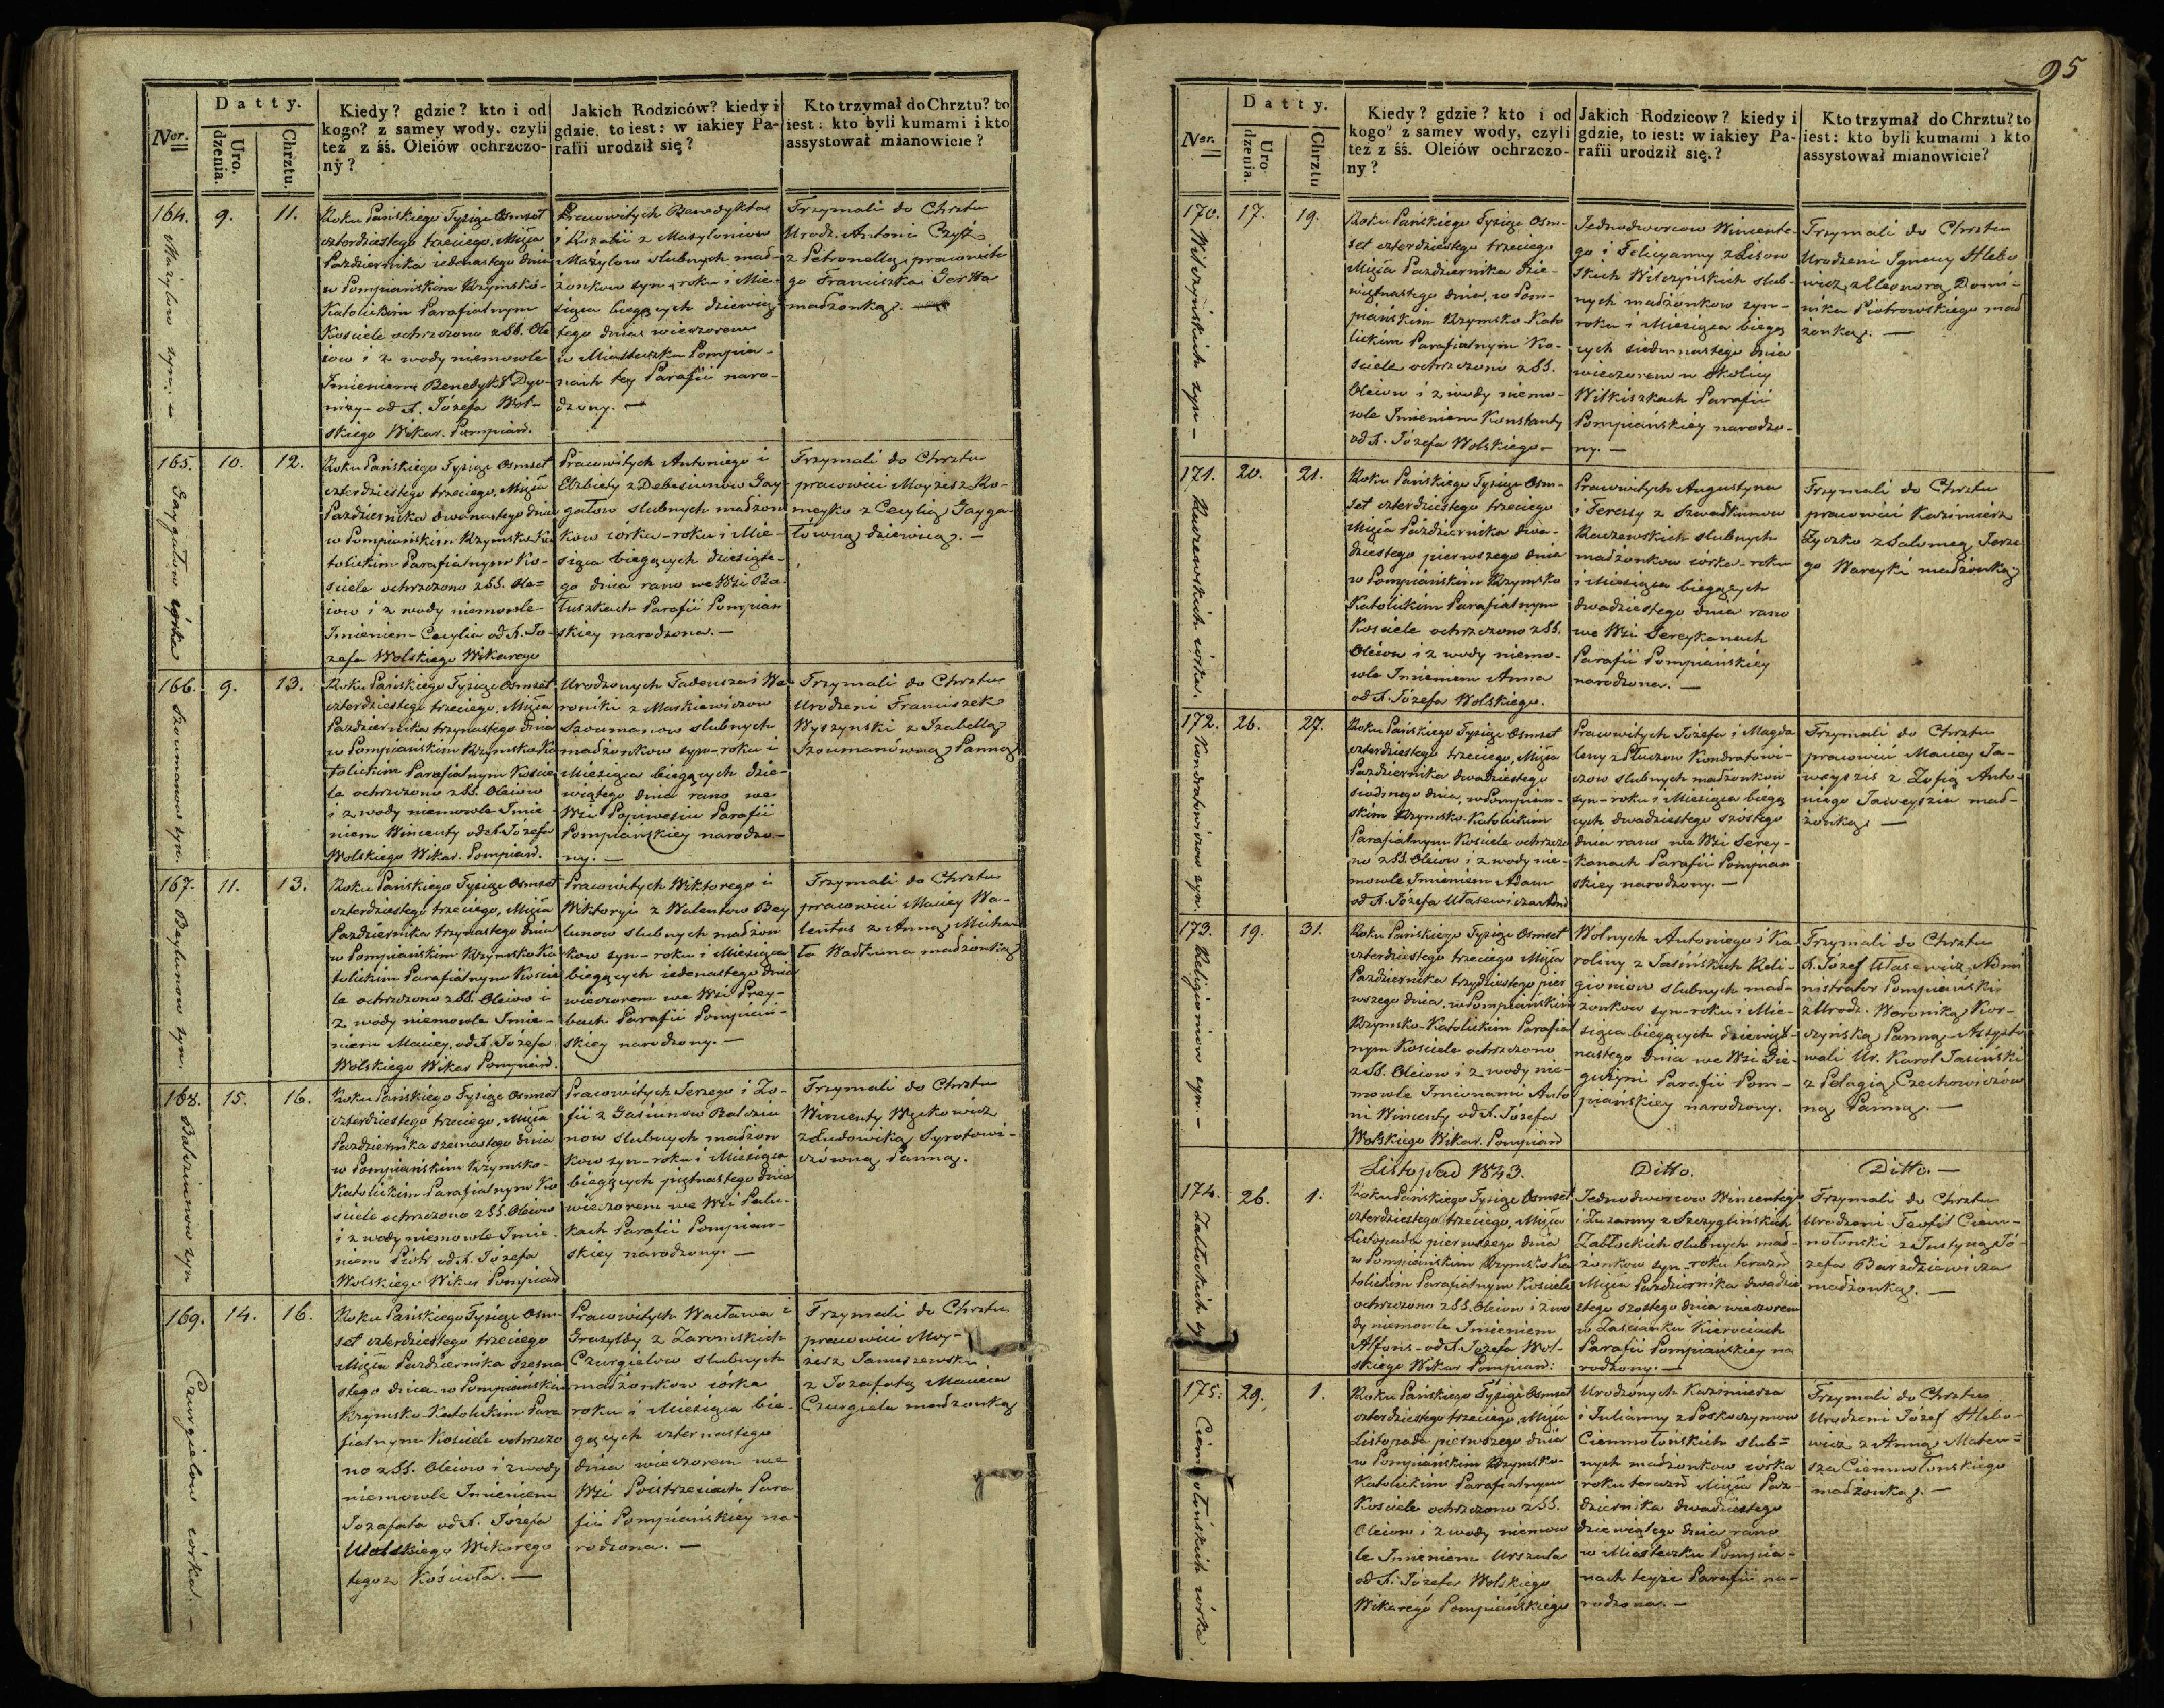 Ner.
Datty.
Uro.
dzenia.
Chrztu.
Kiedy? gdzie? kto i od
kogo? z samey wody, czyli
też z śś. Oleiów ochrzczo-
ny?
Jakich Rodziców? kiedy i
gdzie, to iest: w iakiey Pa-
rafii urodził się?
Kto trzymał do Chrztu? to
iest: kto byli kumami i kto
assystował mianowicie?
164.
Mazylow syn. –
9.
11.
Roku Pańskiego Tysiąc Osmset
czterdziestego trzeciego, Mięsia
Października iedenastego dnia
w Pompiańskim Rzymsko-
Katolickim Parafialnym
Kościele ochrzczono z SS. Ole
iow i z wody niemowle
Imieniem Benedykt Dyo-
nizy – od X. Józefa Wol-
skiego Wikar. Pompiań.
Pracowitych Benedykta
i Rozalii z Mazylonisow
Mazylow slubnych mał-
żonkow syn – roku i Mie-
siąca biegących dziewią
tego dnia wieczorem
w Miasteczku Pompia-
nach tey Parafii naro-
dzony. –
Trzymali do Chrztu
Urodz. Antoni Czyż
z Petronellą, pracowite
go Franciszka Gerłła
małżonką. –
165.
Jaygałow córka
10.
12.
Roku Pańskiego Tysiąc Osmset
czterdziestego trzeciego, Mięsia
Października dwunastego dnia
w Pompiańskim Rzymsko Ka
tolickim Parafialnym Ko-
ściele ochrzczono z SS. Ole=
iow i z wody niemowle
Imieniem Cecylia od X. Jo-
zefa Wolskiego Wikarego
Pracowitych Antoniego i
Elżbiety z Debesiunow Jay-
gałow slubnych małżon
kow córka – roku i Mie-
siąca biegących dziesiąte-
go dnia rano we Wsi Ba
łuszkach Parafii Pompian
skiey narodzona. –
Trzymali do Chrztu
pracowici Moyżesz Ro-
meyko z Cecylią Jayga-
łowną dziewicą. –
166.
Szoumanow syn.
9.
13.
Roku Pańskiego Tysiąc Osmset
czterdziestego trzeciego, Mięsia
Października trzynastego dnia
w Pompiańskim Rzymsko Ka
tolickim Parafialnym Koście
le ochrzczono z SS. Oleiow
i z wody niemowle Imie-
niem Wincenty od X. Józefa
Wolskiego Wikar. Pompiań.
Urodzonych Tadeusza i We
roniki z Maskiewiczow
Szoumanow slubnych
małżonkow syn – roku i
Miesiąca biegących dzie-
wiątego dnia rano we
Wsi Pojuwesiu Parafii
Pompiańskiey narodzo-
ny. –
Trzymali do Chrztu
Urodzeni Franciszek
Wyszynski z Izabellą
Szoumanówną Panną
167.
Beylunow syn.
11.
13.
Roku Pańskiego Tysiąc Osmset
czterdziestego trzeciego, Mięsia
Października trzynastego dnia
w Pompiańskim Rzymsko Ka
tolickim Parafialnym Koście
le ochrzczono z SS. Oleiow i
z wody niemowle Imie-
niem Maciey, od X. Józefa
Wolskiego Wikar Pompiań.
Pracowitych Wiktorego i
Wiktoryi z Walentow Bey
lunow slubnych małżon
kow syn – roku i Miesiąca
biegących iedenastego dnia
wieczorem we Wsi Prey-
bach Parafii Pompiań-
skiey narodzony. –
Trzymali do Chrztu
pracowici Maciey Wa-
lentas z Anną Micha-
ła Wadkuna małżonką
168.
Balziunow syn
15.
16.
Roku Pańskiego Tysiąc Osmset
czterdziestego trzeciego, Mięsia
Października szesnastego dnia
w Pompiańskim Rzymsko-
Katolickim Parafialnym Ko
ściele ochrzczono z SS. Oleiow
i z wody niemowle Imie-
niem Piotr od X. Józefa
Wolskiego Wikar Pompiań
Pracowitych Jerzego i Zo-
fii z Gasiunow Balziu
now slubnych małżon
kow syn – roku i Miesiąca
biegących piętnastego dnia
wieczorem we Wsi Pału-
kach Parafii Pompian-
skiey narodzony. –
Trzymali do Chrztu
Wincenty Węckowicz
z Ludowiką Syrotowi-
czówną Panną.
169.
Czurgielow córka. –
14.
16.
Roku Pańskiego Tysiąc Osm-
set czterdziestego trzeciego
Mięsia Października szesna
stego dnia w Pompiańskim
Rzymsko-Katolickim Para
fialnym Kościele ochrzczo
no z SS. Oleiow i z wody
niemowle Imieniem
Jozafata od X. Józefa
Wolskiego Wikarego
tegoż Kościoła. –
Pracowitych Wacława i
Grazyldy z Zaronskich
Czurgielow slubnych
małżonkow córka
roku i Miesiąca bie-
gących czternastego
dnia wieczorem we
Wsi Poistrzeciach Para
fii Pompiańskiéy na-
rodzona. –
Trzymali do Chrztu
pracowici Moy-
żesz Januszewski
z Jozafatą Macieia
Czurgiela małżonką
95
Ner.
Datty.
Uro
dzenia.
Chrztu
Kiedy? gdzie? kto i od
kogo? z samey wody, czyli
też z śś. Oleiów ochrzczo-
ny?
Jakich Rodzicow? kiedy i
gdzie, to iest: w iakiey Pa-
rafii urodził się.?
Kto trzymał do Chrztu? to
iest: kto byli kumami i kto
assystował mianowicie?
170.
Wilczyńskich syn –
17.
19.
Roku Pańskiego Tysiąc Osm-
set czterdziestego trzeciego
Mięsia Października dzie-
więtnastego dnia, w Pom-
piańskim Rzymsko Kato
lickim Parafialnym Ko-
ściele ochrzczono z SS.
Oleiow i z wody niemo-
wle Imieniem Konstanty
od X. Józefa Wolskiego –
Jednodworcow Wincente-
go i Felicyanny z Lisow
skich Wilczyńskich slub-
nych małżonkow syn –
roku i Miesiąca biegą
cych siedmnastego dnia
wieczorem w Okolicy
Wilkiszkach Parafii
Pompiańskiey narodzo-
ny. –
Trzymali do Chrztu
Urodzeni Ignacy Hlebo
wicz z Eleonorą Domi-
nika Piotrowskiego mał
żonką. –
171.
Raczewskich córka.
20.
21.
Roku Pańskiego Tysiąc Osm-
set czterdziestego trzeciego
Mięsia Października dwu-
dziestego pierwszego dnia
w Pompiańskim Rzymsko
Katolickim Parafialnym
Kościele ochrzczono z SS.
Oleiow i z wody niemo-
wle Imieniem Anna
od X. Józefa Wolskiego.
Pracowitych Augustyna
i Teressy z Szwadkunow
Raczewskich slubnych
małżonkow córka – roku
i Miesiąca biegących
dwudziestego dnia rano
we Wsi Sereykanach
Parafii Pompiańskiéy
narodzona. –
Trzymali do Chrztu
pracowici Kazimierz
Łyczko z Salomeą Jerze
go Wareyki małżonką
172.
Kondratowiczow syn.
26.
27.
Roku Pańskiego Tysiąc Osmset
czterdziestego trzeciego, Mięsia
Października dwudziestego
siodmego dnia, w Pompian-
skim Rzymsko-Katolickim
Parafialnym Kościele ochrzczo
no z SS. Oleiow i z wody nie-
mowle Imieniem Adam
od X. Józefa Ułasewicza Adm
Pracowitych Józefa i Magda
leny z Słuczow Kondratowi-
czow slubnych małżonkow
syn – roku i Miesiąca biegą
cych dwudziestego szóstego
dnia rano we Wsi Serey-
kanach Parafii Pompian
skiey narodzony. –
Trzymali do Chrztu
pracowici Maciey Ja-
weyszis z Zofią Anto-
niego Jaweyszia mał-
żonką. –
173.
Religioniow syn. –
19.
31.
Roku Pańskiego Tysiąc Osmset
czterdziestego trzeciego Mięsia
Października trzydziestego pier
wszego dnia, w Pompiańskim
Rzymsko-Katolickim Parafial
nym Kościele ochrzczono
z SS. Oleiow i z wody nie-
mowle Imionami Anto
ni Wincenty od X. Józefa
Wolskiego Wikar. Pompiań
Wolnych Antoniego i Ka
roliny z Jasińskich Reli-
gioniow slubnych mał-
żonkow syn – roku i Mie-
siąca biegących dziewięt-
nastego dnia we Wsi Gie-
gużyni Parafii Pom-
piańskiey narodzony.
Trzymali do Chrztu
X. Józef Ułasewicz Admi
nistrator Pompiański
z Urodz. Weroniką Kor-
czyńską Panną – Assysto
wali Ur. Karol Jasiński
z Pelagią Czechowiczów
ną Panną. –
Listopad 1843.
Ditto.
Ditto. –
174.
Zabłockich syn
26.
1.
Roku Pańskiego Tysiąc Osmset
czterdziestego trzeciego, Mięsia
Listopada pierwszego dnia
w Pompiańskim Rzymsko Ka
tolickim Parafialnym Kościele
ochrzczono z SS. Oleiow i z wo
dy niemowle Imieniem
Alfons – od X. Józefa Wol-
skiego Wikar Pompiań:
Jednodworcow Wincentego
i Zuzanny z Szczyglińskich
Zabłockich slubnych mał-
żonkow syn – roku terazń
Mięsia Października dwudzie
stego szóstego dnia wieczorem
w Zaścianku Kierociach
Parafii Pompiańskiey na
rodzony. –
Trzymali do Chrztu
Urodzeni Teofil Ciem-
nołonski z Justyną Jó-
zefa Barzdziewicza
małżonką. –
175.
Ciemnołońskich córka
29.
1.
Roku Pańskiego Tysiąc Osmset
czterdziestego trzeciego, Mięsia
Listopada pierwszego dnia
w Pompiańskim Rzymsko-
Katolickim Parafialnym
Kościele ochrzczono z SS.
Oleiow i z wody niemow
le Imieniem Urszula
od X. Józefa Wolskiego
Wikarego Pompiańskiego
Urodzonych Kazimierza
i Julianny z Poskoczymow
Ciemnołońskich slub=
nych małżonkow córka
roku terazń Mięsia Paz-
dziernika dwudziestego
dziewiątego dnia rano
w Miasteczku Pompia-
nach teyże Parafii na-
rodzona. –
Trzymali do Chrztu
Urodzeni Józef Hlebo-
wicz z Anną Mateu=
sza Ciemnołonskiego
małżonką. –